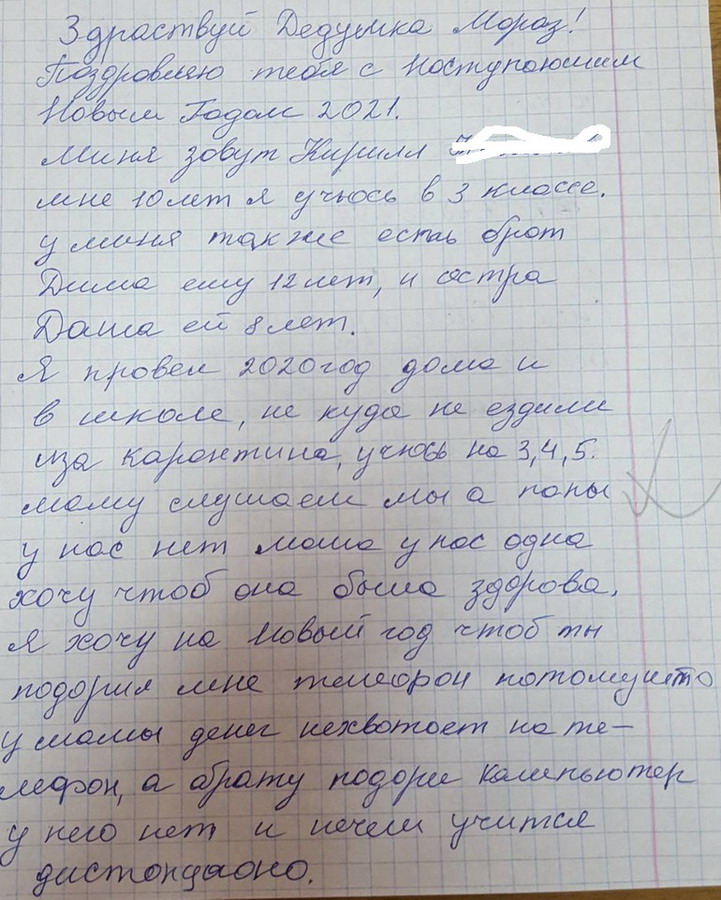 Здраствуй Дедушка Мороз!
Поздровляю тебя с Ноступаюшим
Новым Годом 2021.
Миня зовут Кирилл
мне 10 лет я учюсь в 3 классе.
у миня также есть брат
Дима ему 12 лет, и состра
Даша ей 8 лет.
Я провел 2020 год дома и
в школе, не куда не ездили
иза каронтина, учюсь на 3,4,5.
маму слушаем мы а папы
у нас нет мама у нас одна
хочу чтоб она была здорова.
Я хочу на Новый год чтоб ты
подорил мне телефон потомушто
у мамы денег нехвотает на те-
лефон, а брату подори компьютер
у него нет и нечем учится